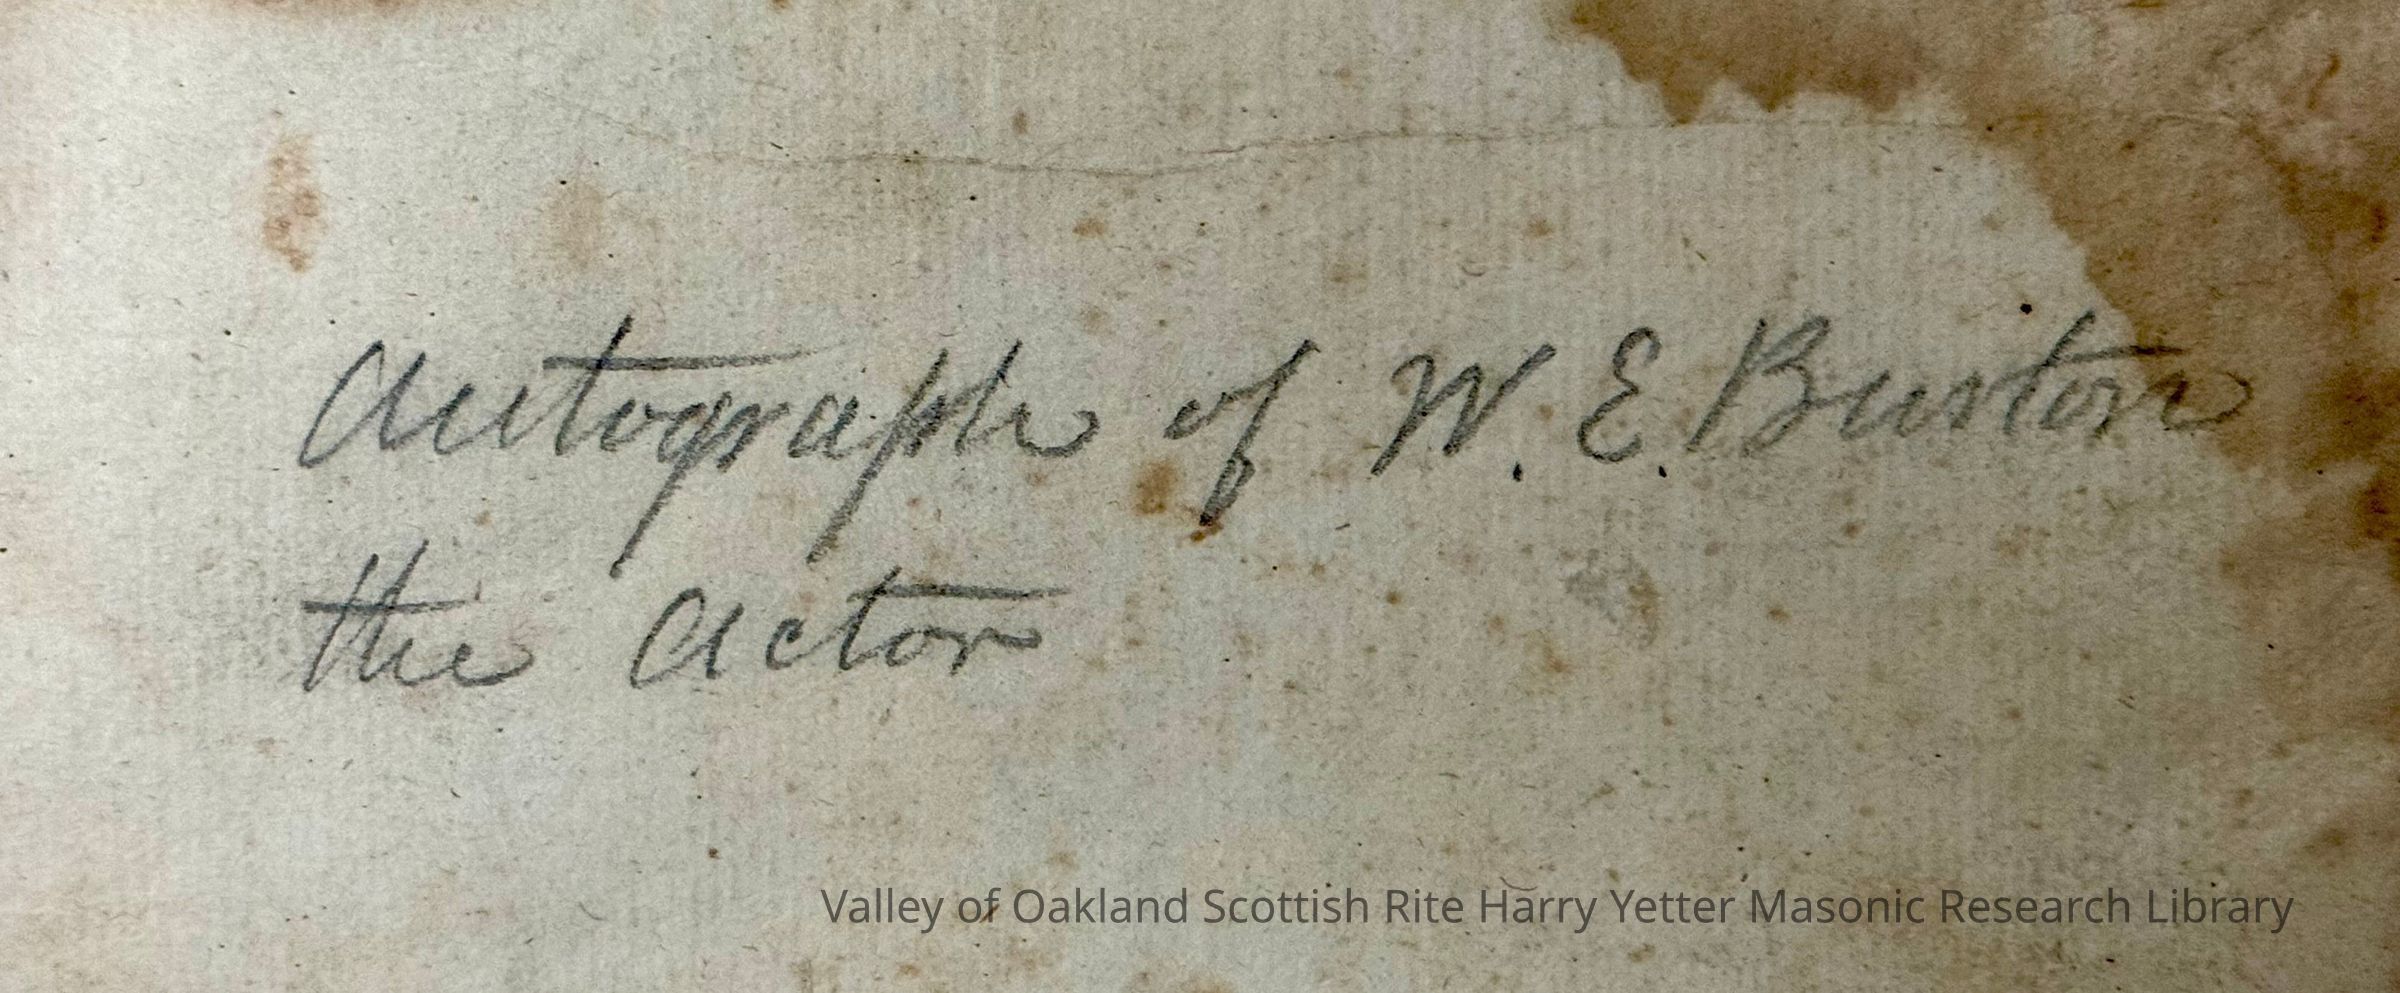 Autograph of W. E. Burton
the actor
Valley of Oakland Scottish Rite Harry Yetter Masonic Research Library